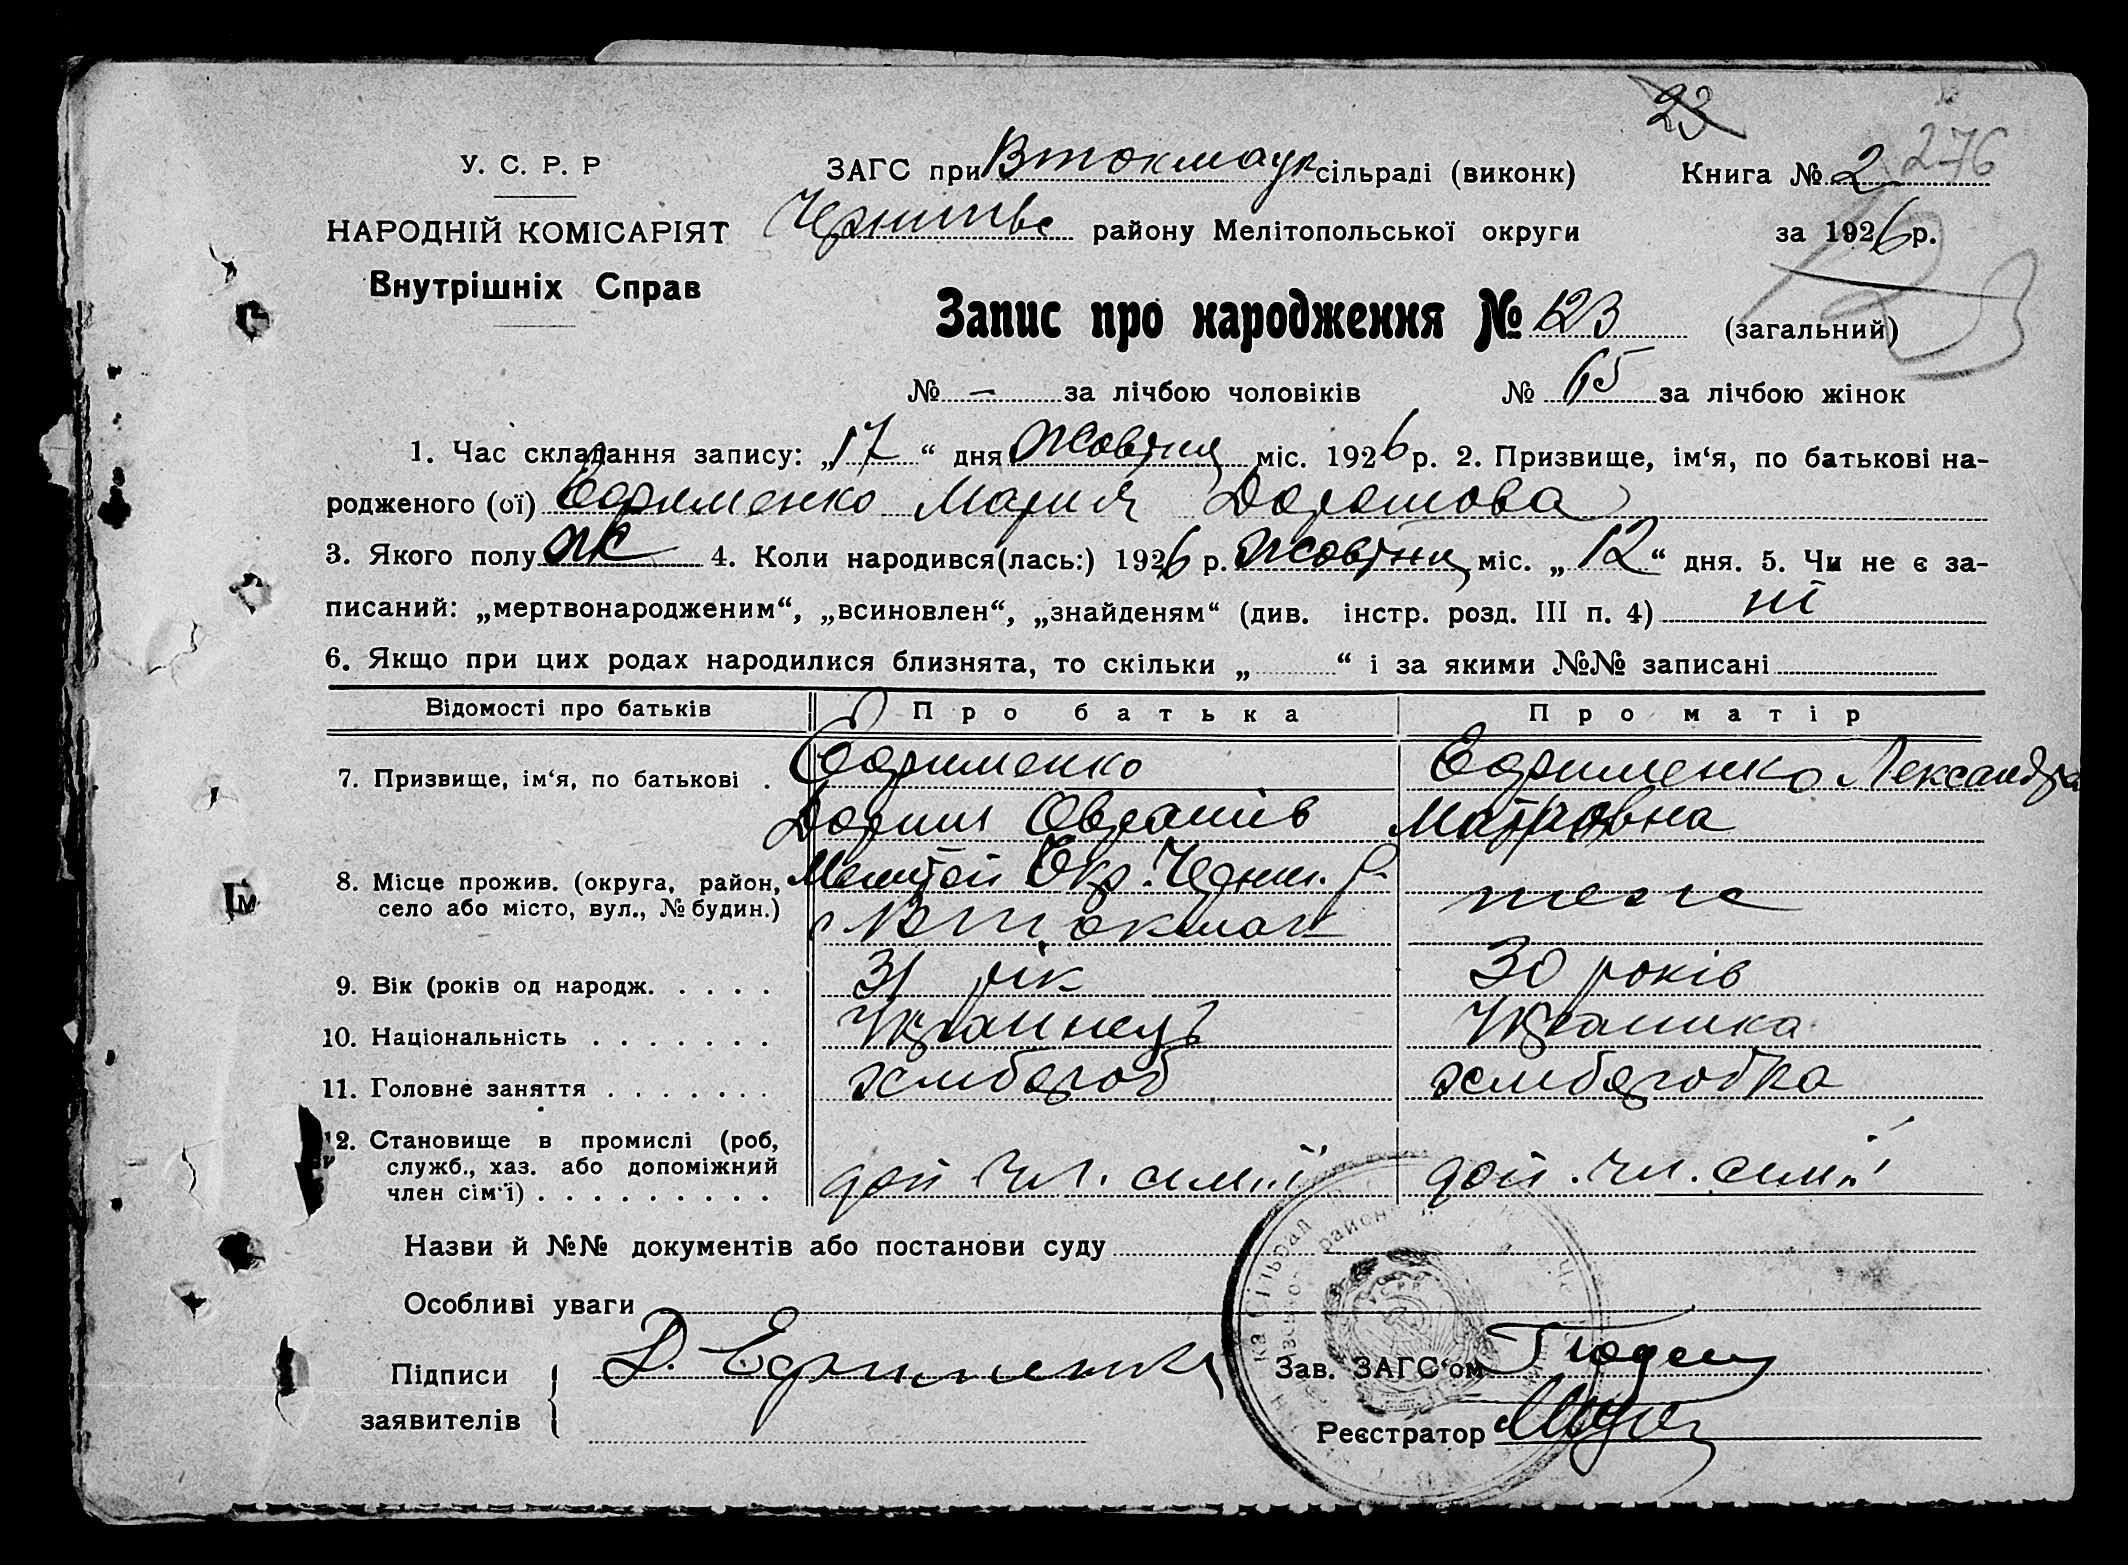 23
У. С. Р. Р   ЗАГС при Втокмацк сільраді (виконк)   Книга № 2   276
НАРОДНІЙ КОМІСАРІЯТ   Чернигівс району Мелітопольської округи   за 1926 р.
Внутрішніх Справ   123
Запис про народження № 123 (загальний)
№ — за лічбою чоловіків   № 65 за лічбою жінок
1. Час складання запису: „17“ дня Жовтня міс. 1926 р. 2. Призвище, ім‘я, по батькові на-
родженого (ої) Ефименко Мария
3. Якого полу ж 4. Коли народився(лась:) 1926 р. Жовтня міс. „12“ дня. 5. Чи не є за-
писаний: „мертвонародженим“, „всиновлен“, „знайденям“ (див. інстр. розд. III п. 4) ні
6. Якщо при цих родах народилися близнята, то скільки „ “ і за якими №№ записані
Відомості про батьків   Про батька   Про матір
7. Призвище, ім‘я, по батькові .   Ефименко   Ефименко Лександра
8. Місце прожив. (округа, район,   Меліт Окр. Черниг. р.   теж
село або місто, вул., № будин.)   с Втокмак
9. Вік (років од народж. . . . .   31 рік   30 років
10. Національність . . . . . . .   Українець   Українка
11. Головне заняття . . . . . . .   хлібороб   хліборобка
12. Становище в промислі (роб,
служб., хаз. або допоміжний   доп. чл. сімї   доп. чл. сімї
член сім‘ї) . . . . . . . . . .
Назви й №№ документів або постанови суду
Особливі уваги
Підписи   Д. Ефименко   Зав. ЗАГС‘ом
заявителів   Реєстратор